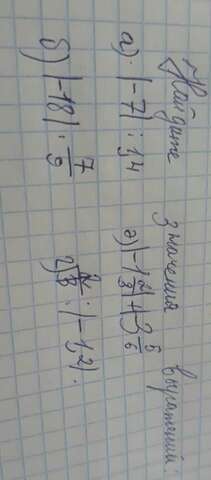 Найдите значения выражений.
а) |-7| : 14 в) |-1 2/3| + |-3 5/6|
б) |-18| : 7/9 г) : |-1,2|.